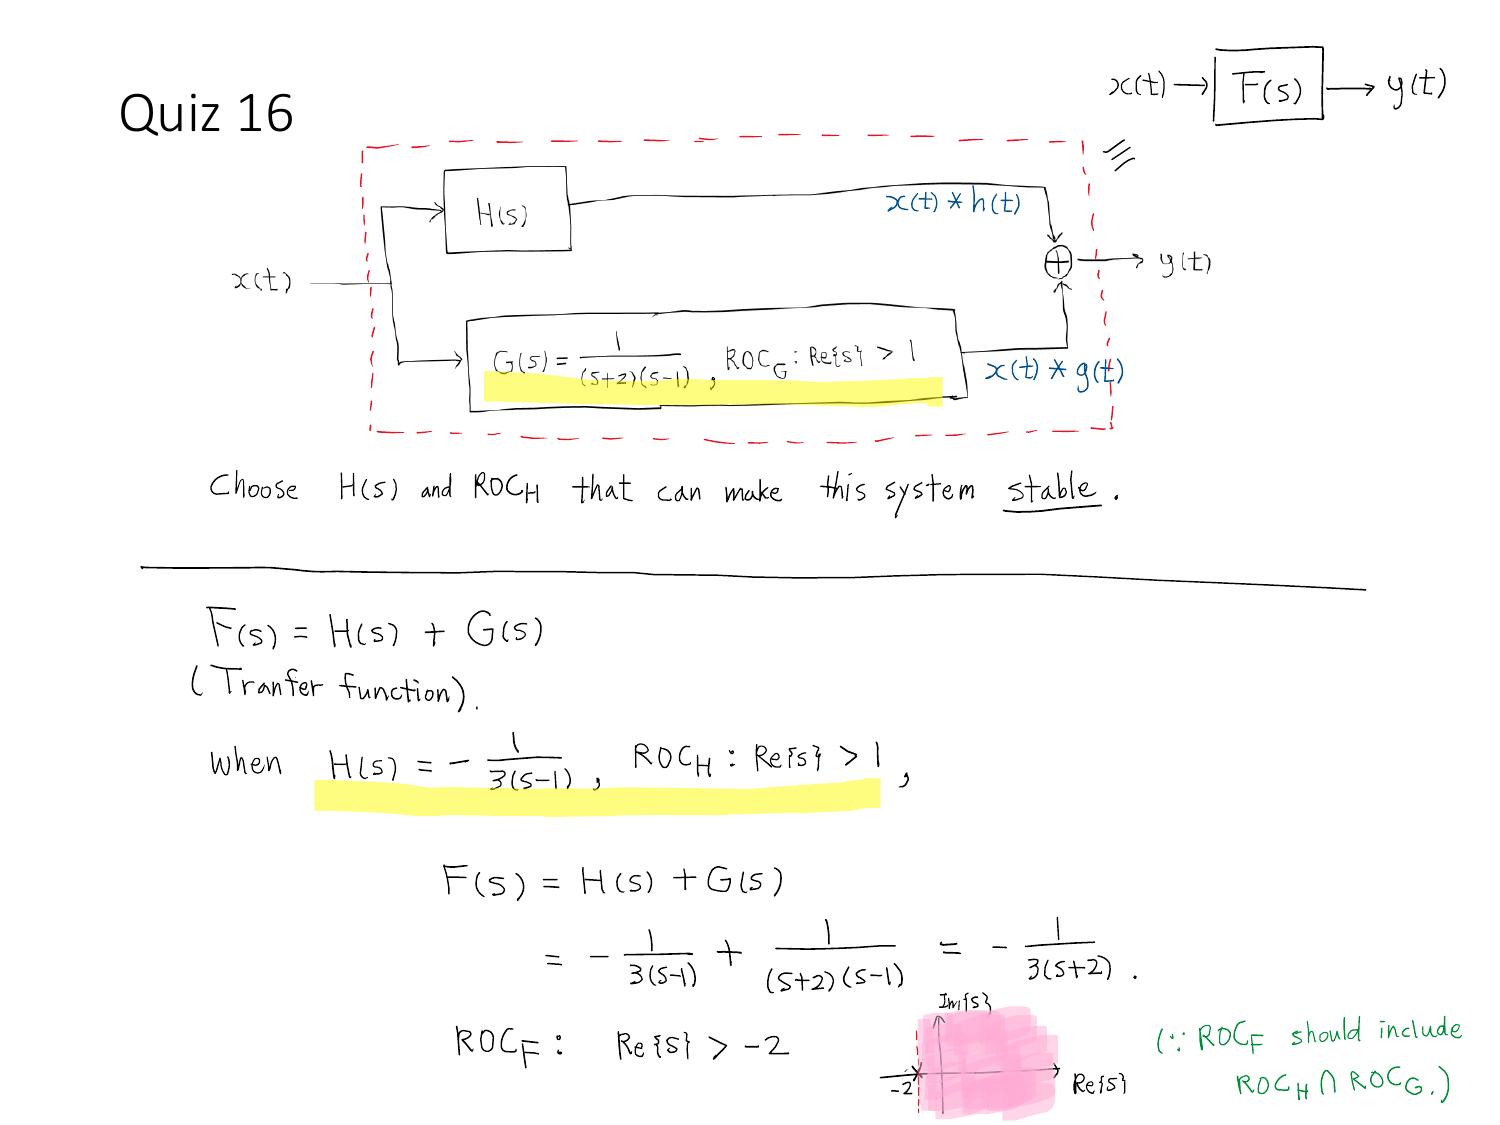 Quiz 16
x(t) → F(s) → y(t)
H(s)
x(t) * h(t)
x(t)
⊕
y(t)
G(s) = 1/((s+2)(s-1)) , ROC_G : Re{s} > 1
x(t) * g(t)
Choose H(s) and ROC_H that can make this system stable.
F(s) = H(s) + G(s)
(Tranfer function).
When H(s) = - 1/(3(s-1)) , ROC_H : Re{s} > 1 ,
F(s) = H(s) + G(s)
= - 1/(3(s-1)) + 1/((s+2)(s-1)) = - 1/(3(s+2)) .
Im{s}
ROC_F : Re{s} > -2
(∵ ROC_F should include
-2
Re{s}
ROC_H ∩ ROC_G.)